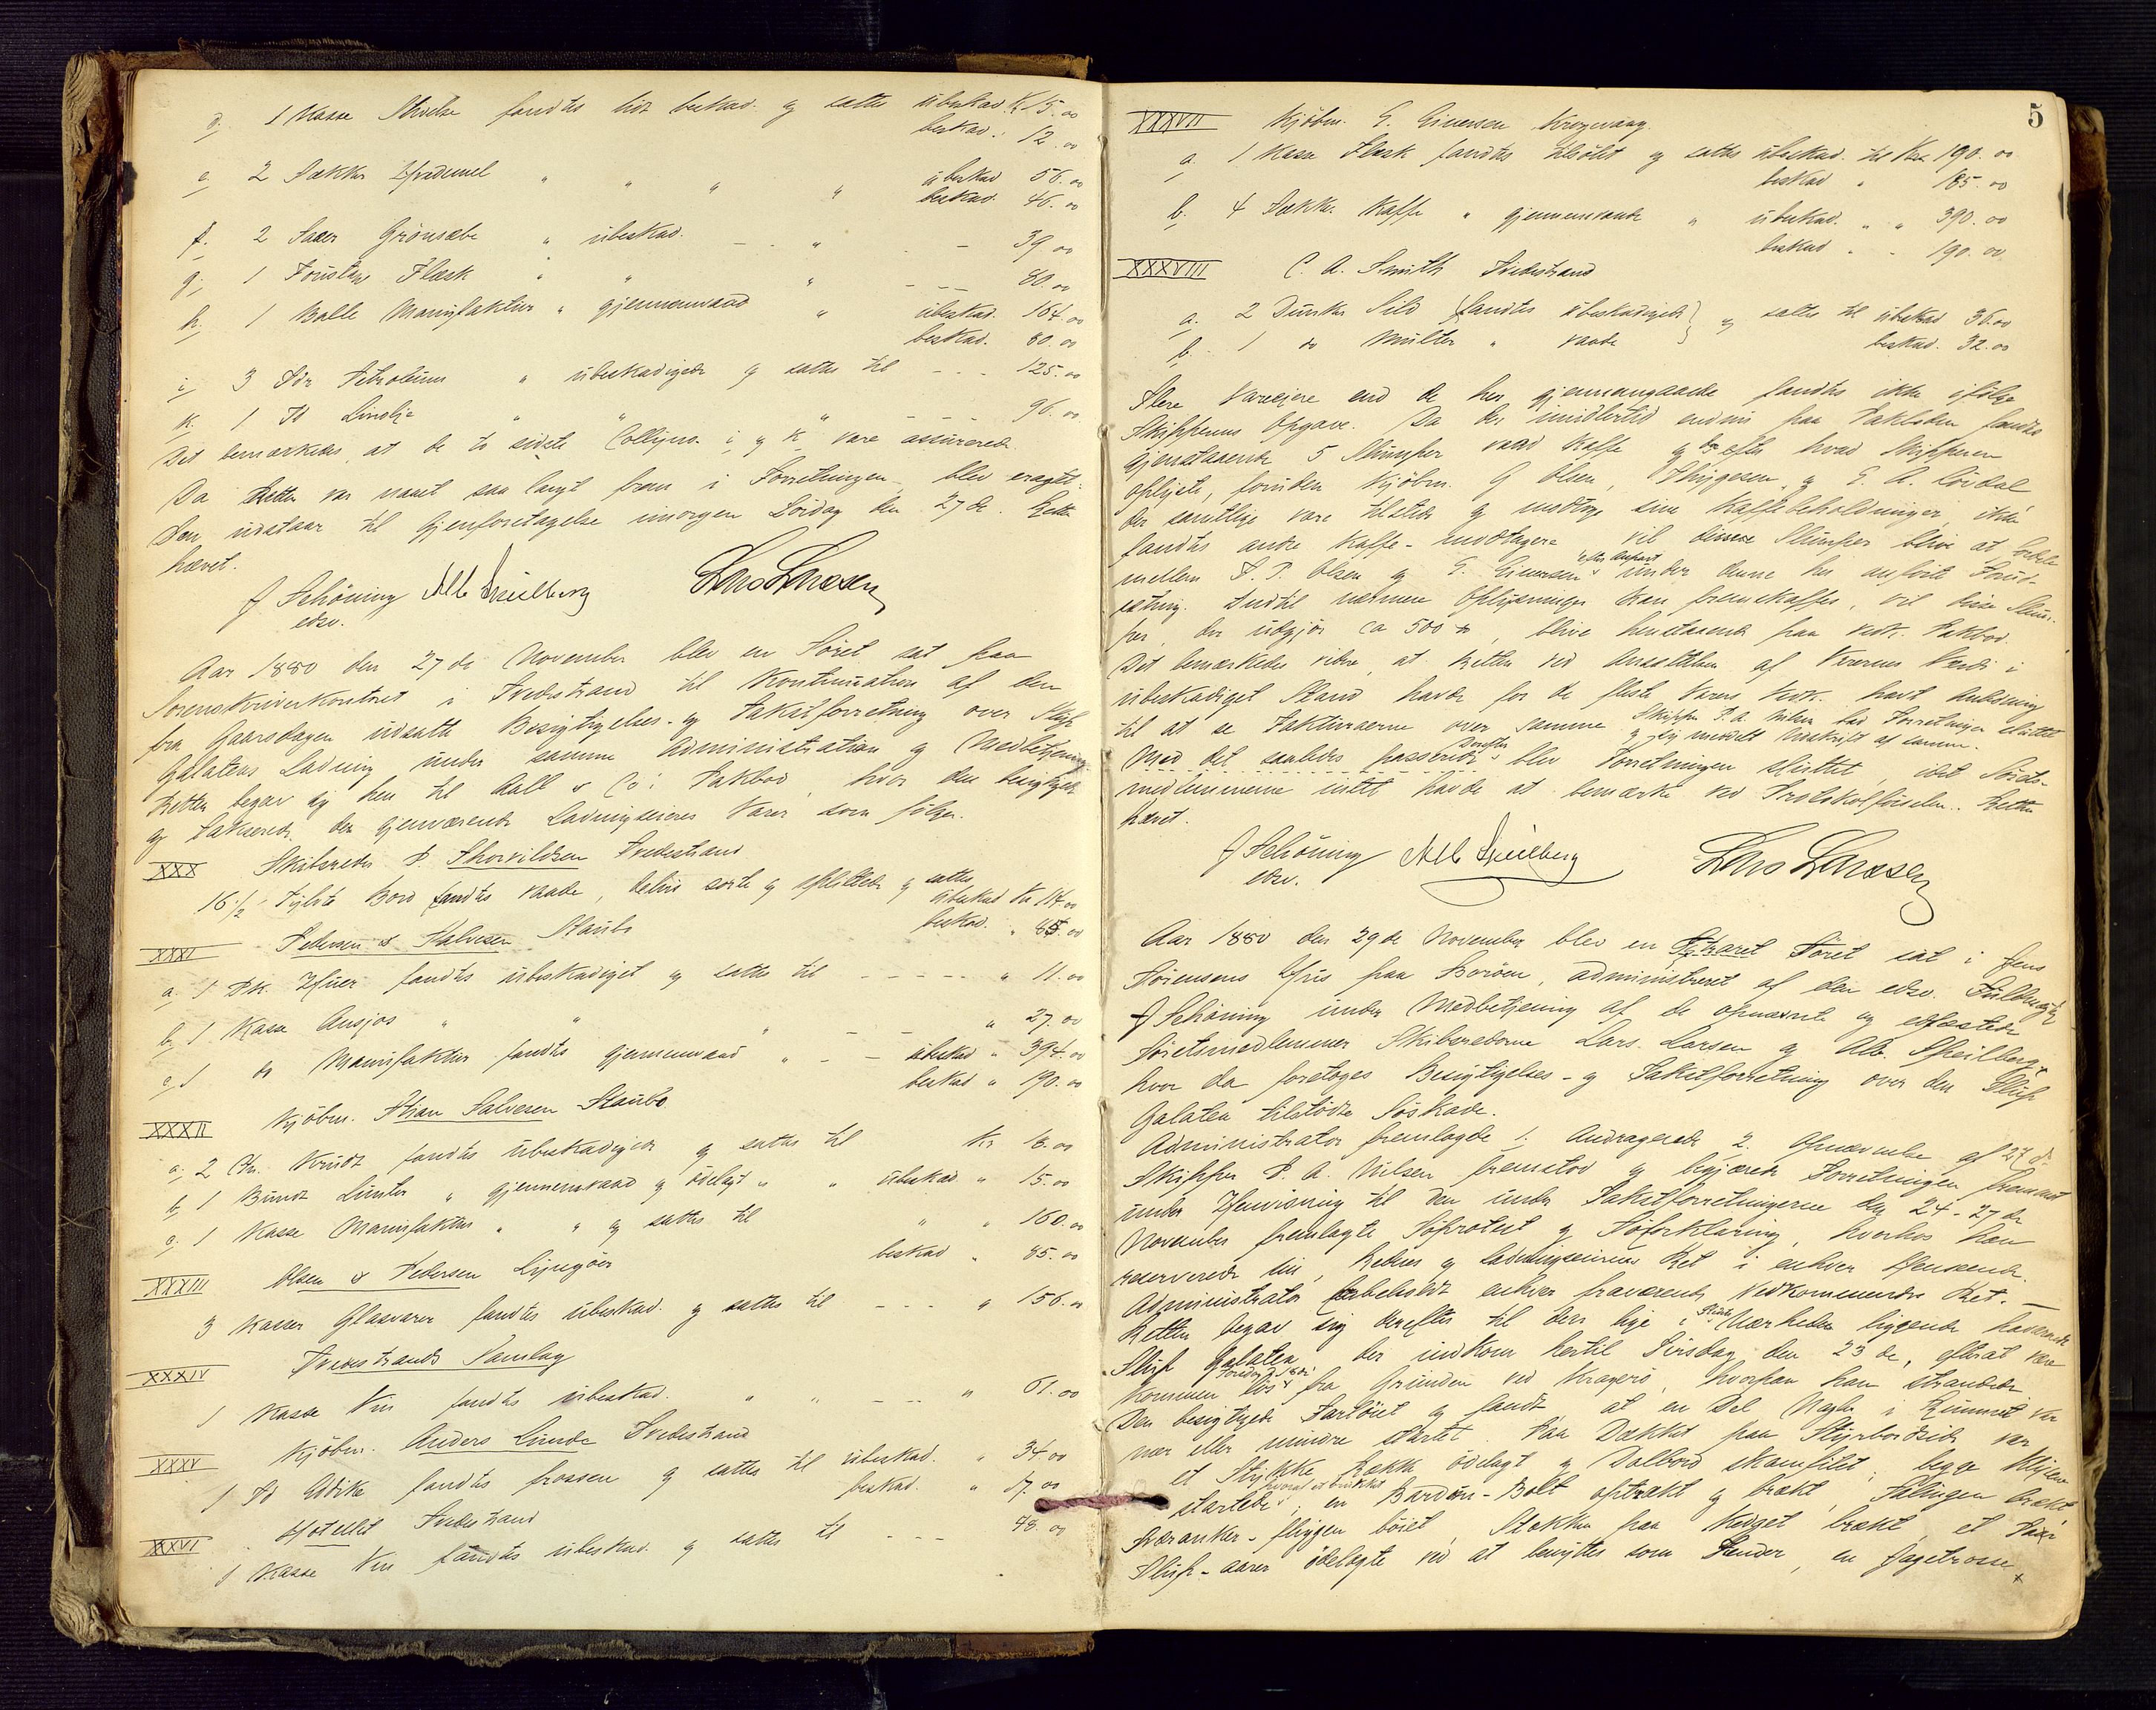 d. 1 Kasse Stivelse fandtes lidt beskad. og sattes ubeskad. Kr 15.00
beskad. 12.00
e. 2 Sækker Hvedemel " " " " ubeskad 56.00
beskad. 46.00
f. 2 Saxer Grönsæbe " ubeskad. - " - 39.00
g. 1 Foustage Flæsk " " " - - - 80.00
h. 1 Balle Manufaktur " gjennemvaad " ubeskad. 164.00
beskad. 80.00
i. 3 Fdr Petroleum " ubeskadigede og sattes til - - - 125.00
k. 1 Fd Linolje " " " - - - 96.00
Det bemærkedes, at de to sidste Collyer i og k vare assurerede.
Da Retten var naaet saa langt frem i Forretningen, blev eragtet:
Den udstaar til Gjenforetagelse imorgen Lördag den 27de. Retten
hævet.
J Schöning Alb Speilberg Lars Larsen
edsv.
Aar 1880 den 27de November blev en Söret sat paa
Sorenskriverkontoret i Tvedestrand til Kontinuation af den
fra Gaarsdagen udsatte Besigtigelses- og Takstforretning over Slup
Galateas Ladning under samme Administration og Medbetjening
Retten begav sig hen til Aall & Co's Pakbod, hvor den besigtigede
og taxerede de gjenværende Ladningseieres Varer som fölger.
XXX Skibsreder P. Thorvildsen Tvedestrand
16 1/2 Tylvt Bord fandtes vaade, delvis sorte og splittede og sattes
ubeskad Kr 114.00
beskad. " 85.00
XXXI Pedersen & Halvesen Staubö
a. 1 Pk. Huer fandtes ubeskadiget og sattes til - - - - - " 11.00
b. 1 Kasse Ansjos " " " - - " 27.00
c. 1 do Manufaktur fandtes gjennemvaad " - - ubeskad " 394.00
beskad " 190.00
XXXII Kjöbm. Stian Salvesen Staubö
a. 2 Ctn. Krudt fandtes ubeskadiget og sattes til Kr 18.00
b. 1 Bundt Lunter " gjennemvaad og ödelagt " " ubeskad. " 15.00
c. 1 Kasse Manufaktur " " og sattes til " " 160.00
beskad " 85.00
XXXIII Olsen & Pedersen Lyngöer
3 Kasser Glasvarer fandtes ubeskad. og sattes til - - - " 156.00
XXXIV Tvedestrands Samlag
1 Kasse Vin fandtes ubeskad. " " - - " 61.00
XXXV Kjöbm. Anders Lunde Tvedestrand
1 Fd Eddike fandtes frossen og sattes til ubeskad. " 34.00
beskad. " 17.00
XXVI Hotellet Tvedestrand
1 Kasse Vin fandtes ubeskad. og sattes til - - - 48.00
5
XXXVII Kjöbm. E. Einersen Krogevaag.
a. 1 Kasse Flæsk fandtes tilsölet og sattes ubeskad. til Kr 190.00
beskad " 185.00
b. 4 Sække Kaffe " gjennemvaade " ubeskad. " " 390.00
beskad " " 190.00
XXXVIII C. A. Smith Tvedestrand
a. 2 Dunker Sild fandtes ubeskadigede } og sattes til ubeskad 36.00
b. 1 do Multer " vaade } beskad. 32.00
Flere Vareeiere end de her gjennemgaaede fandtes ikke ifölge
Skipperens Opgave. Da der imidlertid endnu paa Pakboden fandtes
gjenstaaende 5 Slumper vaad Kaffe og da efter hvad Skipperen
oplyste, foruden Kjöbm. G Olsen, Thygesen og E. A. Lövdal
der samtlige vare tilstede og modtog sine Kaffebeholdninger, ikke
fandtes andre Kaffe-modtagere vil disse Slumper blive at fordele
mellem P. P. Olsen og E. Einersen efter Anpart under denne her anförte Forud-
sætning. Indtil nærmere Oplysninger kan fremskaffes, vil disse Slum-
per, der udgjör ca 500 ℔, blive henstaaende paa vedk. Pakbod.
Det bemærkedes videre, at Retten ved Ansættelsen af Varernes Værdi i
ubeskadiget Stand havde for de fleste Varers Vedk. havt Anledning
til at se Fakturaerne over samme. Skipper P. A. Nilsen bad Forretningen sluttet
og sig meddelt Udskrift af samme.
Med det saaledes passerede Derefter blev Forretningen sluttet, idet Söret-
medlemmerne intet havde at bemærke ved Protokolförselen. Retten
hævet.
J Schöning Alb Speilberg Lars Larsen
edsv.
Aar 1880 den 29de November blev en Extraret Söret sat i Jens
Sörensens Hus paa Boröen, administreret af den edsv. Fuldmægtig
J Schöning under Medbetjening af de opnævnte og edfæstede
Söretsmedlemmer Skibsrederne Lars Larsen og Alb. Speilberg,
hvor da foretoges Besigtigelses- og Takstforretning over den Slup
Galatea tilstödte Söskade.
Administrator fremlagde 1. Andragende 2. Opnævnelse af 27 ds.
Skipper P. A. Nilsen fremstod og begjærede Forretningen fremmet
under Henvisning til den under Takstforretningerne den 24-27de
November fremlagte Söprotest og Söforklaring, hvorhos han
reserverede sin, Rederes og Ladningseieres Ret i enhver Henseende.
Administrator forbeholdt enhver fraværende Vedkommendes Ret. —
Retten begav sig derefter til den lige i Stedets Nærheden liggende havarerede
Slup Galatea, der indkom hertil Tirsdag den 23de, efterat være
kommen lös fra Grunden ved Kragerö, hvorpaa han strandede
Den besigtigede Fartöiet og fandt at en Del Nagler i Rummet var
mer eller mindre startet. Paa Dækket paa Styrbordside var
et Stykke Række ödelagt og Dalbord skamfilet; begge Klyser
startede; en Bardun-Bolt optrækt og brækt, Fålingen brækt
Sværanker-fliggen böiet, Stokken paa Varpet brækt, et Par
Slup-aarer ödelagte ved at benyttes som Fender, en Jagetrosse